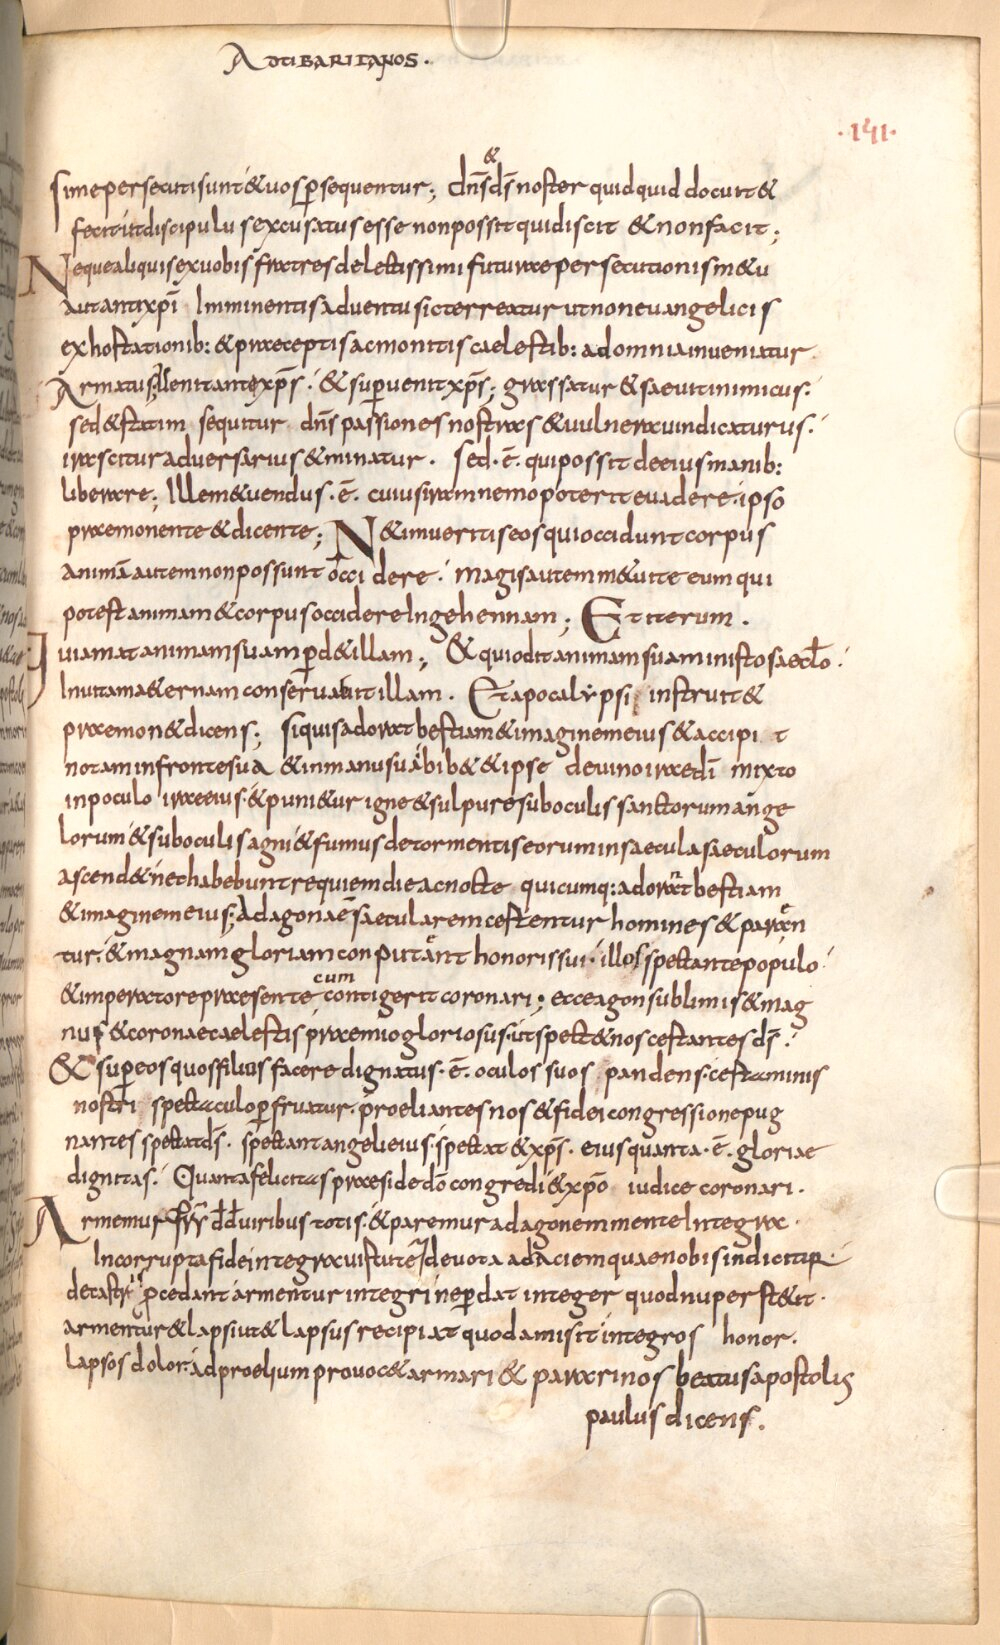 Ad tibaritanos.
·141·
Si me persecuti sunt & uos p̄sequentur; dn̄s & ds̄ noster quidquid docuit &
fecit ut discipulus excusatus esse non possit qui discit & non facit;
Neque aliquis ex uobis fratres delectissimi futurae persecutionis m&u
aut antixp̄i Imminentis aduentu sic terreatur ut non euangelicis
exhortationib: & praeceptis ac monitis caelestib: ad omnia inueniatur
Armatus; Uenit antexp̄s. & sup̄uenit xp̄s; grassatur & saeuit inimicus.
sed & statim sequitur dn̄s passiones nostras & uulnera uindicaturus.
irascitur aduersarius & minatur. sed·ē·qui possit de eius manib:
liberare; Ille m&uendus·ē· cuius iram nemo poterit euadere· ipso
praemonente & dicente; N& imueritis eos qui occidunt corpus
animā autem non possunt occidere. magis autem m&uite eum qui
potest animam & corpus occidere In gehennam; Et iterum.
uiamat animam suam p̄d& illam; & qui odit animam suam in isto saecl̄o.
In uitam a&ernam conseruabit illam. Et apocalypsi instruit &
praemon& dicens; si quis adorat bestiam & imaginem eius & accipi t
notam in fronte sua & in manu sua bib& & ipse de uino irae dī mixto
in poculo irae eius· & puni&ur igne & sulpure sub oculis sanctorum ange
lorum & sub oculis agni & fumus de tormentis eorum in saecula saeculorum
ascend& nec habebunt requiem die ac nocte quicumq: adorat bestiam
& imaginem eius; Ad agonaē saecularem cestentur homines & paraen
tur. & magnam gloriam conputant honoris sui· illos spectante populo·
& imperatore praesente cum contigerit coronari; ecce agon sublimis & mag
nus & corona ecaelestis praemio gloriosus· ut spect& nos cestantes ds̄.
& sup̄ eos quos filius facere dignatus·ē· oculos suos pandens· cestaminis
nostri spectaculo p̄fruatur. proeliantes nos & fidei congressione pug
nantes spectat ds̄. spectant angeli eius. spectat & xp̄s· eius quanta·ē· gloriae
dignitas. Quanta felicitas praeside dō congredi & xp̄o iudice coronari.
Armemur fr̄r d̄d̄ uiribus totis. & paremur ad agonem mente Integra·
Incorrupta fide integra uirtute deuota ad aciem quae nobis indicitur·
de castr̄ p̄cedant armentur integri ne p̄dat integer quod nuper st&it·
armentur & lapsi ut & lapsus recipiat quod amisit integros honor.
lapsos dolor. ad proelium prouoc& armari & parari nos beatus apostolus
paulus dicens.